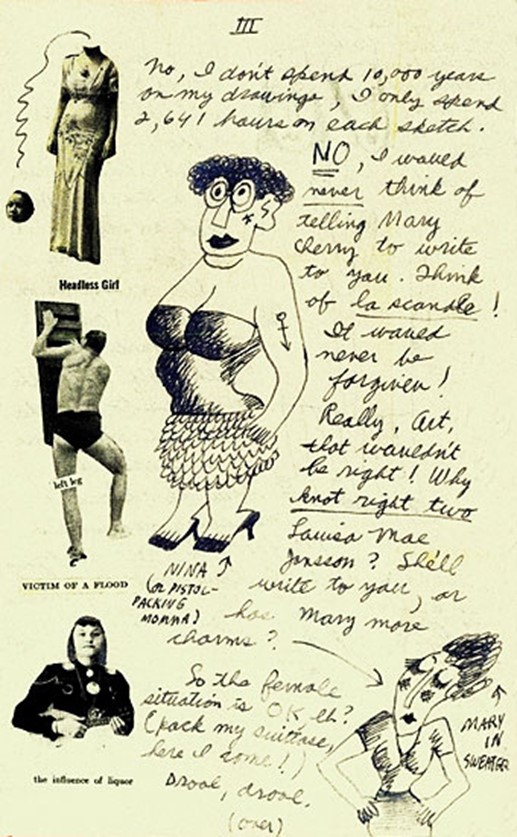 III
No, I don't spend 10,000 years
on my drawings, I only spend
2,641 hours on each sketch.
NO, I waued
never think of
telling Mary
Cherry to write
to you. Think
of la scandle!
It waued
never be
forgiven!
Really, Art,
that wauedn't
be right! Why
knot right two
Louisa Mae
Jonsson? She'll
write to you, or
has Mary more
charms?
So tha female
situation is OK eh?
(pack my suitcase,
here I come!)
Drool, drool.
(over)
Headless Girl
left leg
VICTIM OF A FLOOD
the influence of liquor
NINA
(OR PISTOL-
PACKING
MOMMA)
MARY
IN
SWEATER